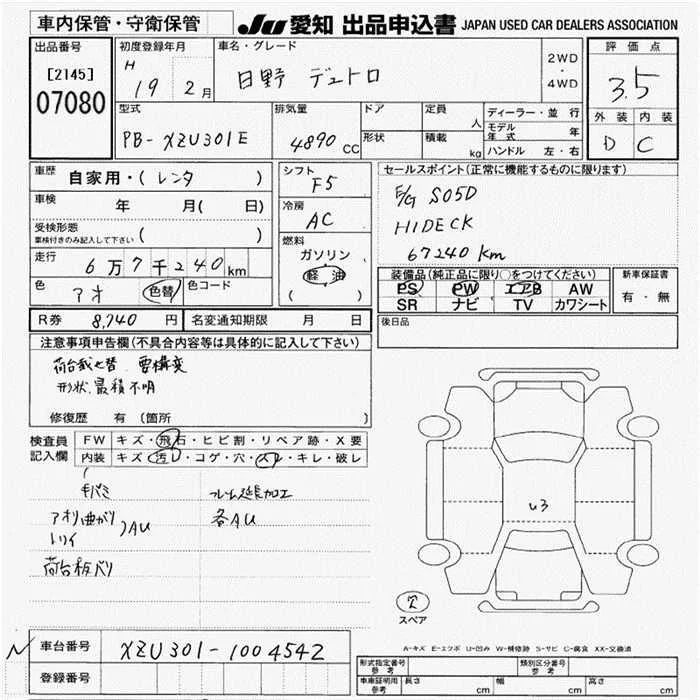 車内保管・守衛保管
JU 愛知 出品申込書 JAPAN USED CAR DEALERS ASSOCIATION
出品番号
[2145]
07080
初度登録年月
H 19 2月
車名・グレード
日野 デュトロ
2WD
・
4WD
評価点
3.5
外装 内装
D C
型式
PB-XZU301E
排気量
4890 CC
ドア
形状
定員 人
積載 kg
ディーラー・並行
モデル年式 年
ハンドル 左・右
車歴 自家用・(レンタ )
車検 年 月( 日)
受検形態
車検付きのみ記入して下さい ( )
走行 6万7千240km
色 アオ 色替 色コード
シフト
F5
冷房
AC
燃料
ガソリン
軽油
( )
セールスポイント(正常に機能するものに限ります)
E/G S05D
HIDECK
67240km
装備品(純正品に限り○をつけてください)
PS PW エアB AW
SR ナビ TV カワシート
新車保証書
有・無
R券 8,740円 名変通知期限 月 日
後日品
注意事項申告欄(不具合内容等は具体的に記入して下さい)
荷台載せ替 要構変
形状、最積不明
修復歴 有(箇所 )
検査員
記入欄
FW キズ・飛石・ヒビ割・リペア跡・X要
内装 キズ・汚し・コゲ・穴・スレ・キレ・破レ
フレーム延長加工
アオリ曲がり
各AU
トリイ
AU
荷台板バリ
U3
スペア
A-キズ E-エクボ U-凹み W-補修跡 S-サビ C-腐食 XX-交換済
車台番号 XZU301-1004542
登録番号
形式指定番号
参考
類別区分番号
参考
車庫証明用
参考
長さ cm 幅 cm 高さ cm